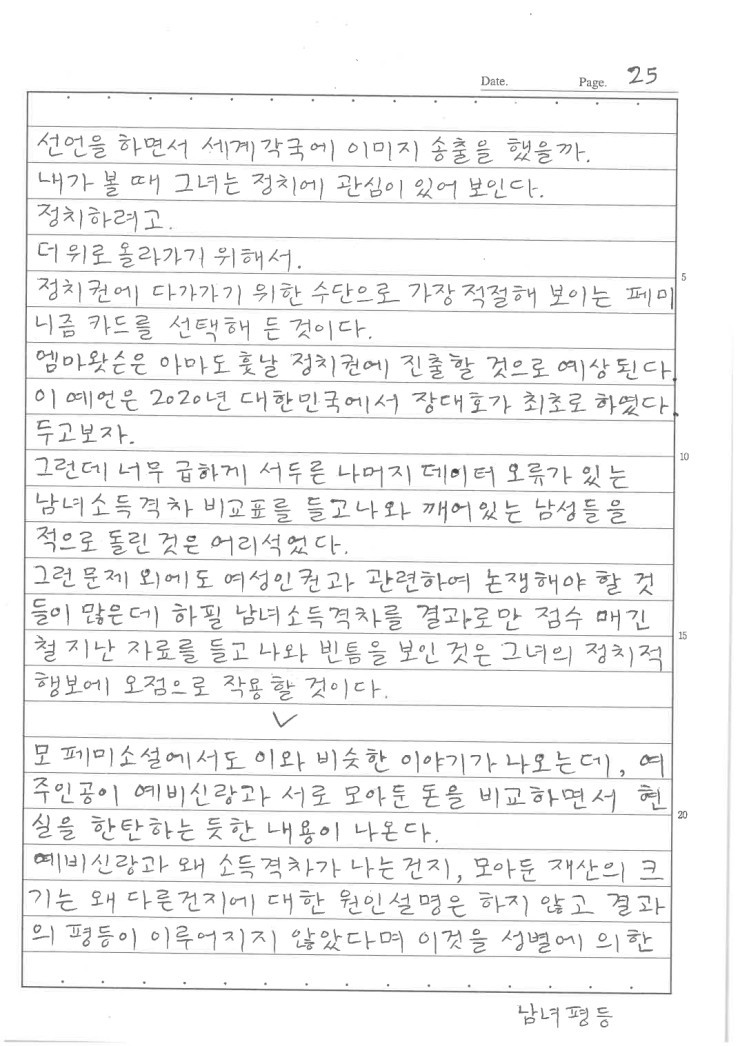 Date. Page. 25
선언을 하면서 세계각국에 이미지 송출을 했을까.
내가 볼 때 그녀는 정치에 관심이 있어 보인다.
정치하려고.
더 위로 올라가기 위해서.
5
정치권에 다가가기 위한 수단으로 가장적절해 보이는 페미
니즘 카드를 선택해 든 것이다.
엠마왓슨은 아마도 훗날 정치권에 진출할 것으로 예상된다.
이 예언은 2020년 대한민국에서 장대호가 최초로 하였다.
두고보자.
10
그런데 너무 급하게 서두른 나머지 데이터 오류가 있는
남녀소득격차 비교표를 들고나와 깨어있는 남성들을
적으로 돌린 것은 어리석었다.
그런 문제 외에도 여성인권과 관련하여 논쟁해야 할 것
들이 많은데 하필 남녀소득격차를 결과로만 점수 매긴
15
철 지난 자료를 들고 나와 빈틈을 보인 것은 그녀의 정치적
행보에 오점으로 작용할 것이다.
모 페미소설에서도 이와 비슷한 이야기가 나오는데, 여
주인공이 예비신랑과 서로 모아둔 돈을 비교하면서 현
20
실을 한탄하는 듯한 내용이 나온다.
예비신랑과 왜 소득격차가 나는건지, 모아둔 재산의 크
기는 왜 다른건지에 대한 원인설명은 하지 않고 결과
의 평등이 이루어지지 않았다며 이것을 성별에 의한
남녀평등